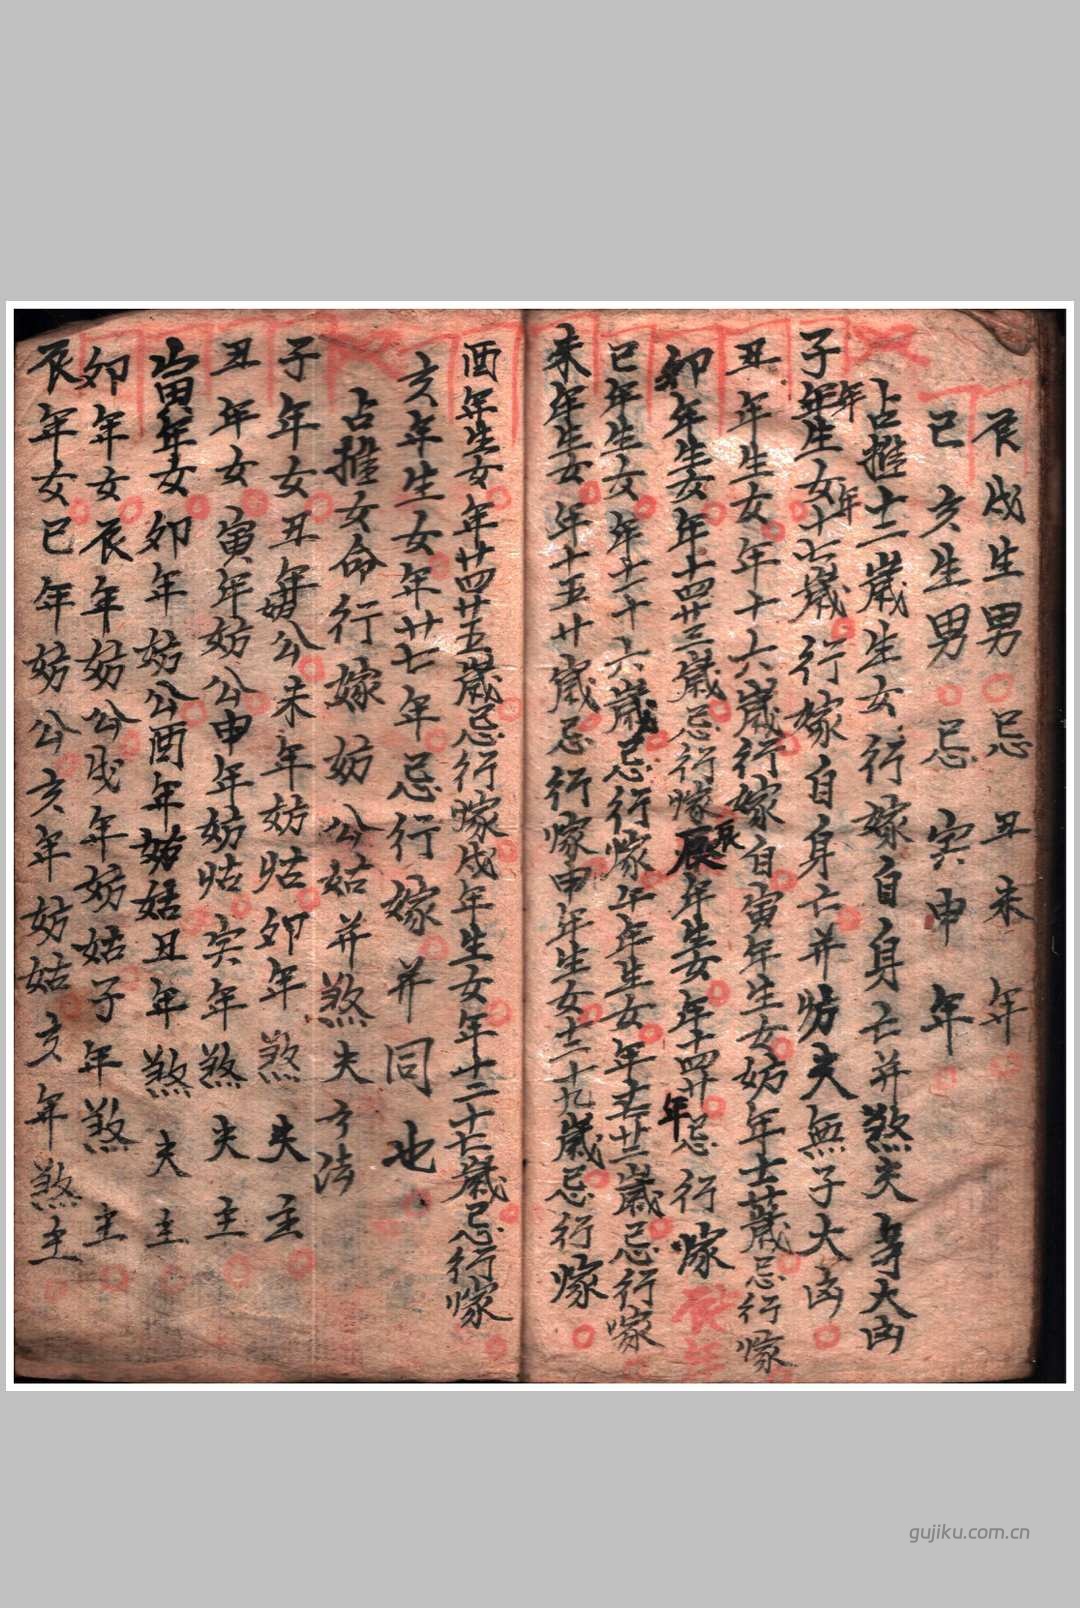 辰戌生男忌丑未年
巳亥生男忌寅申年
占推十二歲生女行嫁自身亡并煞夫等大凶
子年生女年十七歲行嫁自身亡并妨夫無子大凶
丑年生女年十六歲行嫁自寅年生女妨年十二廿歲忌行嫁
卯年生女年十四廿三歲忌行嫁辰年生女年十四廿年忌行嫁
巳年生女年十二十六歲忌行嫁午年生女年十一廿二歲忌行嫁
未年生女年十五廿歲忌行嫁申年生女十二十九歲忌行嫁
酉年生女年廿四廿五歲忌行嫁戌年生女年十二十七歲忌行嫁
亥年生女年廿七年忌行嫁并同也
占推女命行嫁妨公姑并煞夫
子年女丑年妨公未年妨姑卯年煞夫主
丑年女寅年妨公申年妨姑寅年煞夫主
寅年女卯年妨公酉年妨姑丑年煞夫主
卯年女辰年妨公戌年妨姑子年煞主
辰年女巳年妨公亥年妨姑亥年煞主
gujiku.com.cn